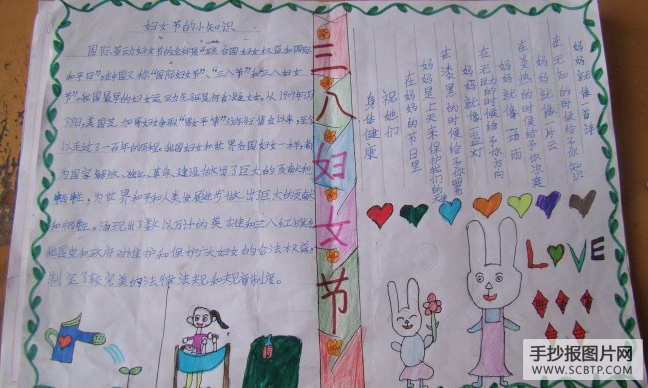 妇女节的小知识
国际劳动妇女节的全称是"联合国妇女权益和国际
和平日",在中国又称"国际妇女节"、"三八节"和三八妇女
节"。我国最早的妇女运动先驱是何香凝女士。从1909年3月
8日,美国芝加哥妇女争取"男女平等"游行集会以来,至今
以走过了一百年的历程。我国妇女和世界各国妇女一样,都
为国家解放、独立、革命、建设做出了巨大的贡献和
牺牲。为世界和平和人类发展进步做出了巨大的贡献
和牺牲。涌现出了数以万计的英雄和三八红旗
我国党和政府对维护和保护广大妇女的合法权益,
制定了较完美的法律法规和规章制度。
三八妇女节
妈妈就像一首诗
在无知的时候给予你知识
妈妈就像一片云
在炎热的时候给予你凉爽
妈妈就像一场雨
在无助的时候给予你方向
妈妈就像一盏灯
在漆黑的时候给予你照
妈妈是上天来保护我们的天
在妈妈的节日里
祝她们
身体健康
LOVE
手抄报图片网
WWW.SCBTP.COM